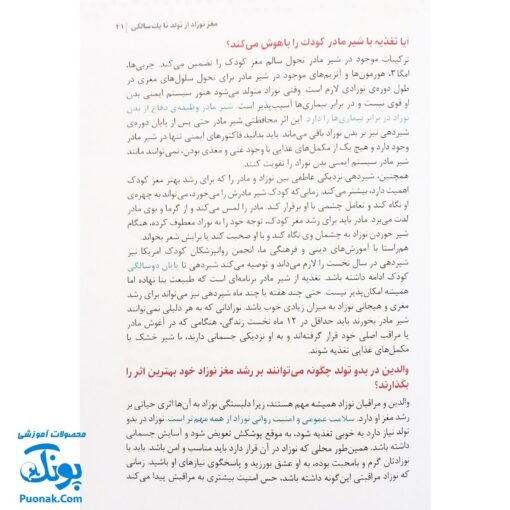 مغز نوزاد از تولد تا یک‌سالگی | ۲۱
آیا تغذیه با شیر مادر کودک را باهوش می‌کند؟
ترکیبات موجود در شیر مادر تحول سالم مغز کودک را تضمین می‌کند. چربی‌ها،
امگا ۳، هورمون‌ها و آنزیم‌های موجود در شیر مادر برای تحول سلول‌های مغزی در
طول دوره‌ی نوزادی لازم است. وقتی نوزاد متولد می‌شود هنوز سیستم ایمنی بدن
او قوی نیست و در برابر بیماری‌ها آسیب‌پذیر است. شیر مادر وظیفه‌ی دفاع از بدن
نوزاد در برابر بیماری‌ها را دارد. این اثر محافظتی شیر مادر حتی پس از پایان دوره‌ی
شیردهی نیز بر بدن نوزاد باقی می‌ماند. باید بدانید فاکتورهای ایمنی تنها در شیر مادر
وجود دارد و هیچ یک از مکمل‌های غذایی با وجود غنی و مغذی بودن، نمی‌توانند مانند
شیر مادر سیستم ایمنی بدن نوزاد را تقویت کنند.
همچنین، شیردهی نزدیکی عاطفی بین نوزاد و مادر را که برای رشد بهتر مغز کودک
اهمیت دارد، بیشتر می‌کند. زمانی‌که کودک شیر مادرش را می‌خورد، می‌تواند به چهره‌ی
او نگاه کند و تعامل چشمی با او برقرار کند. مادر را لمس می‌کند و از گرما و بوی مادر
لذت می‌برد. مادر باید برای رشد کودک، توجه خود را به نوزاد معطوف کرده، هنگام
شیر خوردن نوزاد به چشمان وی نگاه کند و با او صحبت کند یا برایش شعر بخواند.
هم‌راستا با آموزش‌های دینی و فرهنگی ما، انجمن روانپزشکان کودک امریکا نیز
شیردهی در سال نخست را لازم می‌داند و توصیه می‌کند شیردهی تا پایان دوسالگی
کودک ادامه داشته باشد. تغذیه از شیر مادر برنامه‌ای است که طبیعت بنا نهاده اما
همیشه امکان‌پذیر نیست. حتی چند هفته یا چند ماه شیردهی نیز می‌تواند برای رشد
مغزی و هیجانی نوزاد به میزان زیادی خوب باشد. نوزادانی که به هر دلیلی نمی‌توانند
شیر مادر بخورند باید حداقل در ۱۲ ماه نخست زندگی، هنگامی که در آغوش مادر
یا مراقب اصلی خود قرار گرفته‌اند و به او نزدیکی جسمانی دارند، با شیر خشک یا
مکمل‌های غذایی تغذیه شوند.
والدین در بدو تولد چگونه می‌توانند بر رشد مغز نوزاد خود بهترین اثر را
بگذارند؟
والدین و مراقبان نوزاد همیشه مهم هستند، زیرا دلبستگی نوزاد به آن‌ها اثری حیاتی بر
رشد مغز او دارد. سلامت عمومی و امنیت روانی نوزاد از همه مهم‌تر است. نوزاد در بدو
تولد نیاز دارد به خوبی تغذیه شود، به موقع پوشکش تعویض شود و آسایش جسمانی
داشته باشد. همین‌طور محلی که نوزاد در آن قرار دارد باید مناسب و امن باشد. باید با
نوزادتان گرم و بامحبت بوده، به او عشق بورزید و پاسخگوی نیازهای او باشید. زمانی
که نوزاد مراقبتی این‌گونه داشته باشد، حس امنیت بیشتری به مراقبش پیدا می‌کند
محصولات آموزشی
پونک
Puonak.Com